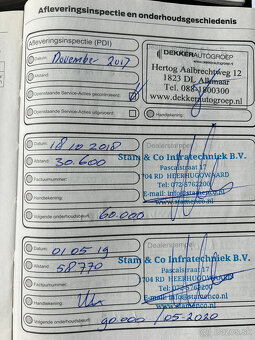 Afleveringsinspectie en onderhoudsgeschiedenis
Afleveringsinspectie (PDI)
Datum: November 2017
Afstand:
Openstaande Service-Acties gecontroleerd:
Openstaande Service-Acties uitgevoerd:
Handtekening:
DEKKERAUTOGROEP
Hertog Aalbrechtweg 12
1823 DL Alkmaar
Tel. 088-1800300
www.dekkerautogroep.nl
Handtekening:
Datum: 18 10 2018
Afstand: 30.600
Factuurnummer:
Handtekening:
Volgende onderhoudsbeurt: 60.000
Dealerstempel
Stam & Co Infratechniek B.V.
Pascalstraat 17
1704 RD HEERHUGOWAARD
Tel: 072-5762200
E-mail: info@stamenco.nl
www.stamenco.nl
Datum: 01 05 19
Afstand: 58770
Factuurnummer:
Handtekening:
Volgende onderhoudsbeurt: 90.000 / 05-2020
Dealerstempel
Stam & Co Infratechniek B.V.
Pascalstraat 17
1704 RD HEERHUGOWAARD
E-mail: info@stamenco.nl